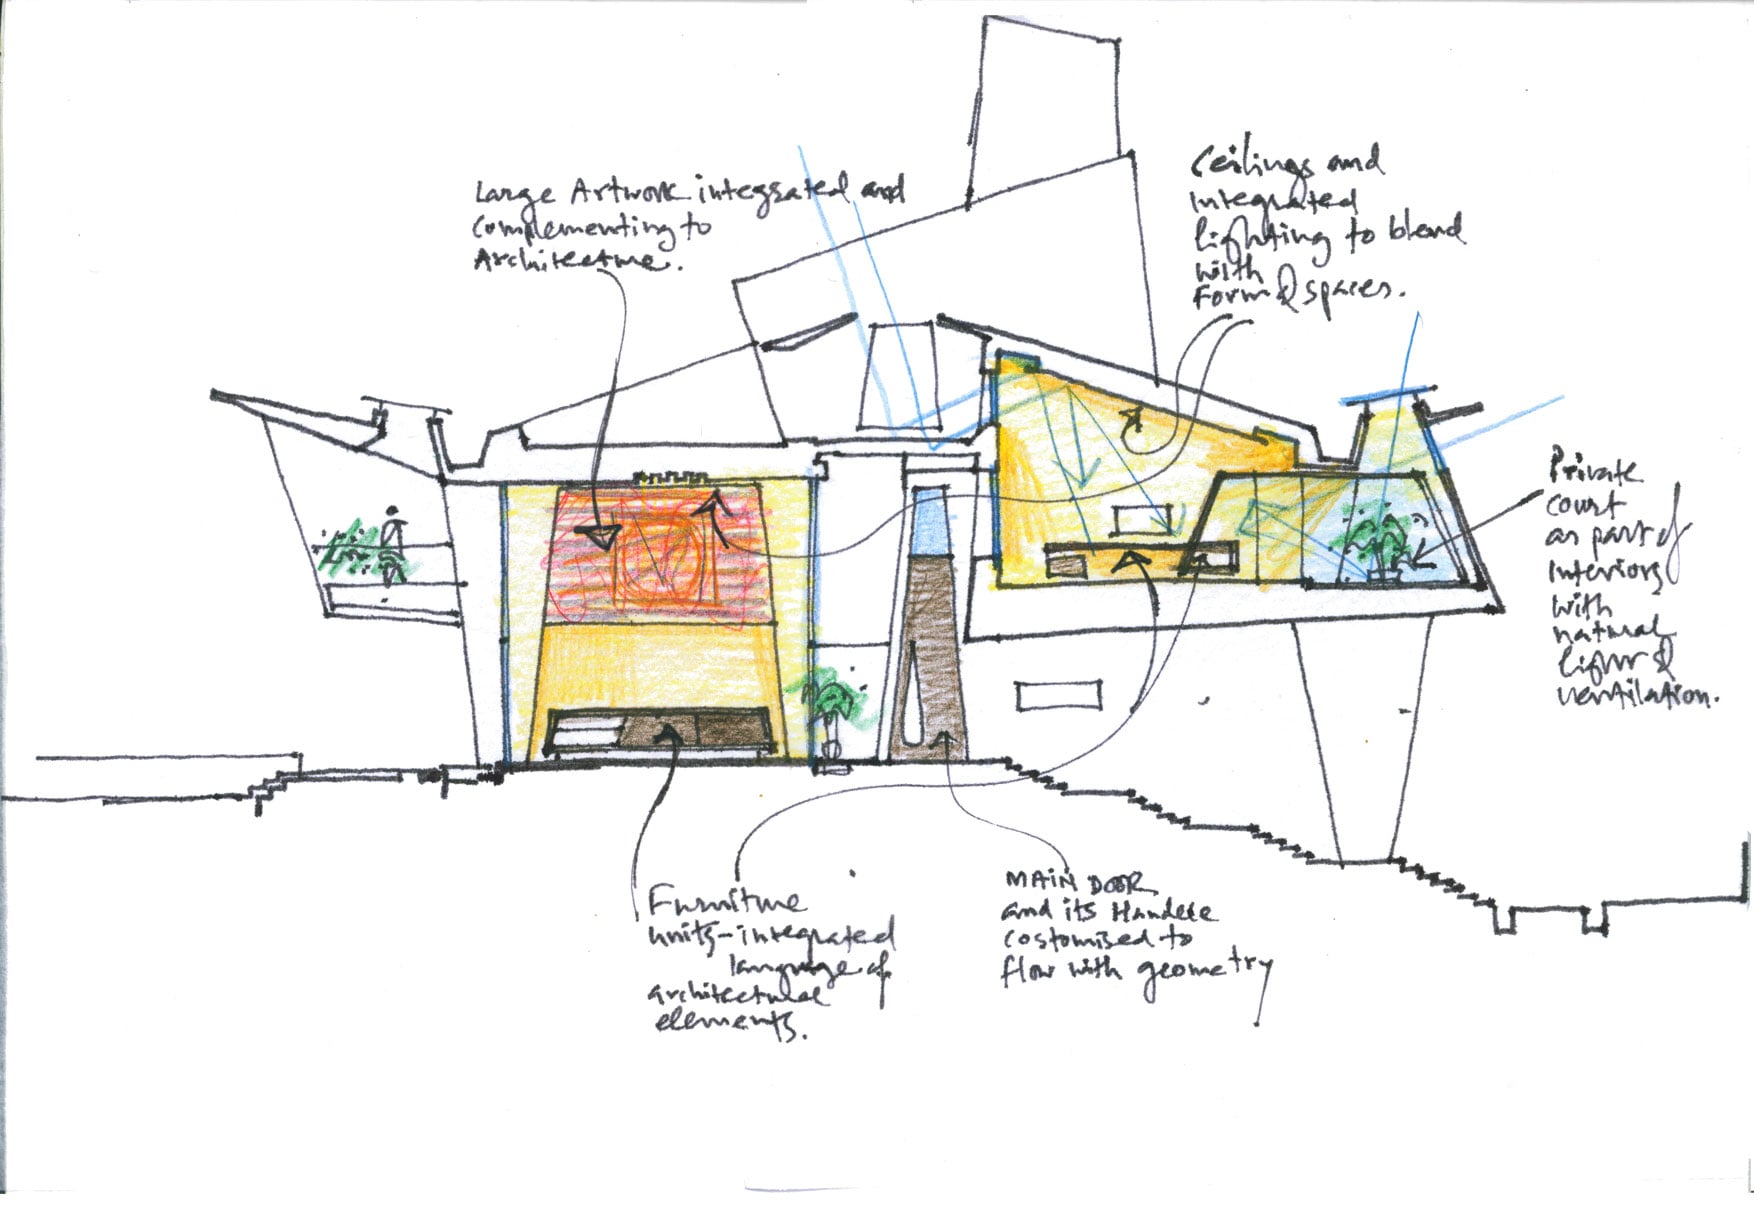 Large Artwork integrated and
complementing to
Architecture.
Ceilings and
integrated
lighting to blend
with
Form & spaces.
Private
court
as part of
Interiors
with
natural
light &
ventilation.
Furniture
units-integrated
language of
architectural
elements.
MAIN DOOR
and its Handle
costomised to
flow with geometry